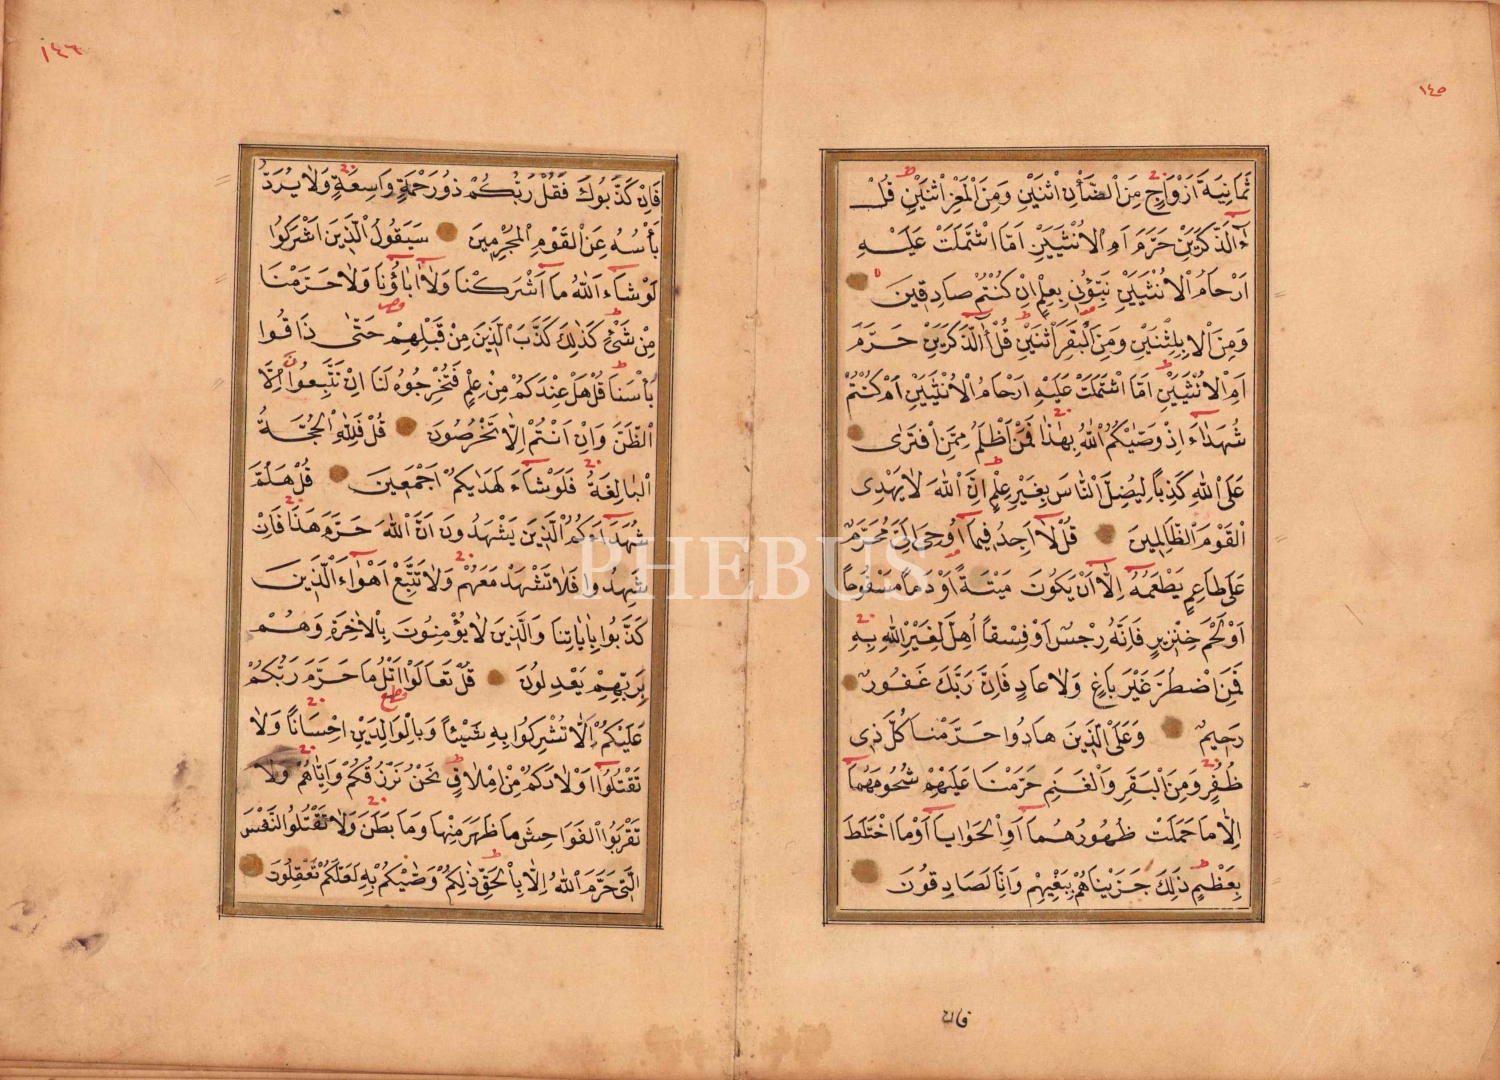 ١٤٥
ثَمَانِيَةَ اَزْوَاجٍ مِنَ الضَّأْنِ اثْنَيْنِ وَمِنَ الْمَعْزِ اثْنَيْنِ قُلْ
ءٰٓالذَّكَرَيْنِ حَرَّمَ اَمِ الْاُنْثَيَيْنِ اَمَّا اشْتَمَلَتْ عَلَيْهِ
اَرْحَامُ الْاُنْثَيَيْنِ نَبِّؤُنِي بِعِلْمٍ اِنْ كُنْتُمْ صَادِقِينَ
وَمِنَ الْاِبِلِ اثْنَيْنِ وَمِنَ الْبَقَرِ اثْنَيْنِ قُلْ ءٰٓالذَّكَرَيْنِ حَرَّمَ
اَمِ الْاُنْثَيَيْنِ اَمَّا اشْتَمَلَتْ عَلَيْهِ اَرْحَامُ الْاُنْثَيَيْنِ اَمْ كُنْتُمْ
شُهَدَاءَ اِذْ وَصّٰيكُمُ اللّٰهُ بِهٰذَا فَمَنْ اَظْلَمُ مِمَّنِ افْتَرٰى
عَلَى اللّٰهِ كَذِباً لِيُضِلَّ النَّاسَ بِغَيْرِ عِلْمٍ اِنَّ اللّٰهَ لَا يَهْدِى
الْقَوْمَ الظَّالِمِينَ قُلْ لَا اَجِدُ فِيمَا اُوحِيَ اِلَيَّ مُحَرَّماً
عَلٰى طَاعِمٍ يَطْعَمُهُ اِلَّا اَنْ يَكُونَ مَيْتَةً اَوْ دَماً مَسْفُوحاً
اَوْ لَحْمَ خِنْزِيرٍ فَاِنَّهُ رِجْسٌ اَوْ فِسْقاً اُهِلَّ لِغَيْرِ اللّٰهِ بِهِ
فَمَنِ اضْطُرَّ غَيْرَ بَاغٍ وَلَا عَادٍ فَاِنَّ رَبَّكَ غَفُورٌ
رَحِيمٌ وَعَلَى الَّذِينَ هَادُوا حَرَّمْنَا كُلَّ ذِى
ظُفُرٍ وَمِنَ الْبَقَرِ وَالْغَنَمِ حَرَّمْنَا عَلَيْهِمْ شُحُومَهُمَا
اِلَّا مَا حَمَلَتْ ظُهُورُهُمَا اَوِ الْحَوَايَا اَوْ مَا اخْتَلَطَ
بِعَظْمٍ ذٰلِكَ جَزَيْنَاهُمْ بِبَغْيِهِمْ وَاِنَّا لَصَادِقُونَ
فان
١٤٦
فَاِنْ كَذَّبُوكَ فَقُلْ رَبُّكُمْ ذُو رَحْمَةٍ وَاسِعَةٍ وَلَا يُرَدُّ
بَأْسُهُ عَنِ الْقَوْمِ الْمُجْرِمِينَ سَيَقُولُ الَّذِينَ اَشْرَكُوا
لَوْ شَاءَ اللّٰهُ مَا اَشْرَكْنَا وَلَا اٰبَاؤُنَا وَلَا حَرَّمْنَا
مِنْ شَيْءٍ كَذٰلِكَ كَذَّبَ الَّذِينَ مِنْ قَبْلِهِمْ حَتّٰى ذَاقُوا
بَأْسَنَا قُلْ هَلْ عِنْدَكُمْ مِنْ عِلْمٍ فَتُخْرِجُوهُ لَنَا اِنْ تَتَّبِعُونَ اِلَّا
الظَّنَّ وَاِنْ اَنْتُمْ اِلَّا تَخْرُصُونَ قُلْ فَلِلّٰهِ الْحُجَّةُ
الْبَالِغَةُ فَلَوْ شَاءَ لَهَدٰيكُمْ اَجْمَعِينَ قُلْ هَلُمَّ
شُهَدَاءَكُمُ الَّذِينَ يَشْهَدُونَ اَنَّ اللّٰهَ حَرَّمَ هٰذَا فَاِنْ
شَهِدُوا فَلَا تَشْهَدْ مَعَهُمْ وَلَا تَتَّبِعْ اَهْوَاءَ الَّذِينَ
كَذَّبُوا بِاٰيَاتِنَا وَالَّذِينَ لَا يُؤْمِنُونَ بِالْاٰخِرَةِ وَهُمْ
بِرَبِّهِمْ يَعْدِلُونَ قُلْ تَعَالَوْا اَتْلُ مَا حَرَّمَ رَبُّكُمْ
عَلَيْكُمْ اَلَّا تُشْرِكُوا بِهِ شَيْئاً وَبِالْوَالِدَيْنِ اِحْسَاناً وَلَا
تَقْتُلُوا اَوْلَادَكُمْ مِنْ اِمْلَاقٍ نَحْنُ نَرْزُقُكُمْ وَاِيَّاهُمْ وَلَا
تَقْرَبُوا الْفَوَاحِشَ مَا ظَهَرَ مِنْهَا وَمَا بَطَنَ وَلَا تَقْتُلُوا النَّفْسَ
الَّتِى حَرَّمَ اللّٰهُ اِلَّا بِالْحَقِّ ذٰلِكُمْ وَصّٰيكُمْ بِهِ لَعَلَّكُمْ تَعْقِلُونَ
PHEBUS